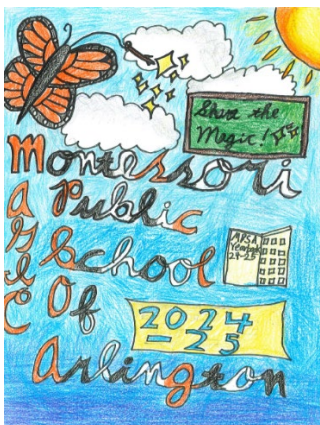 Share the
Magic!
Montessori
Public
School
Of
Arlington
MAGIC
MPSA
Yearbook
24-25
2024
-25